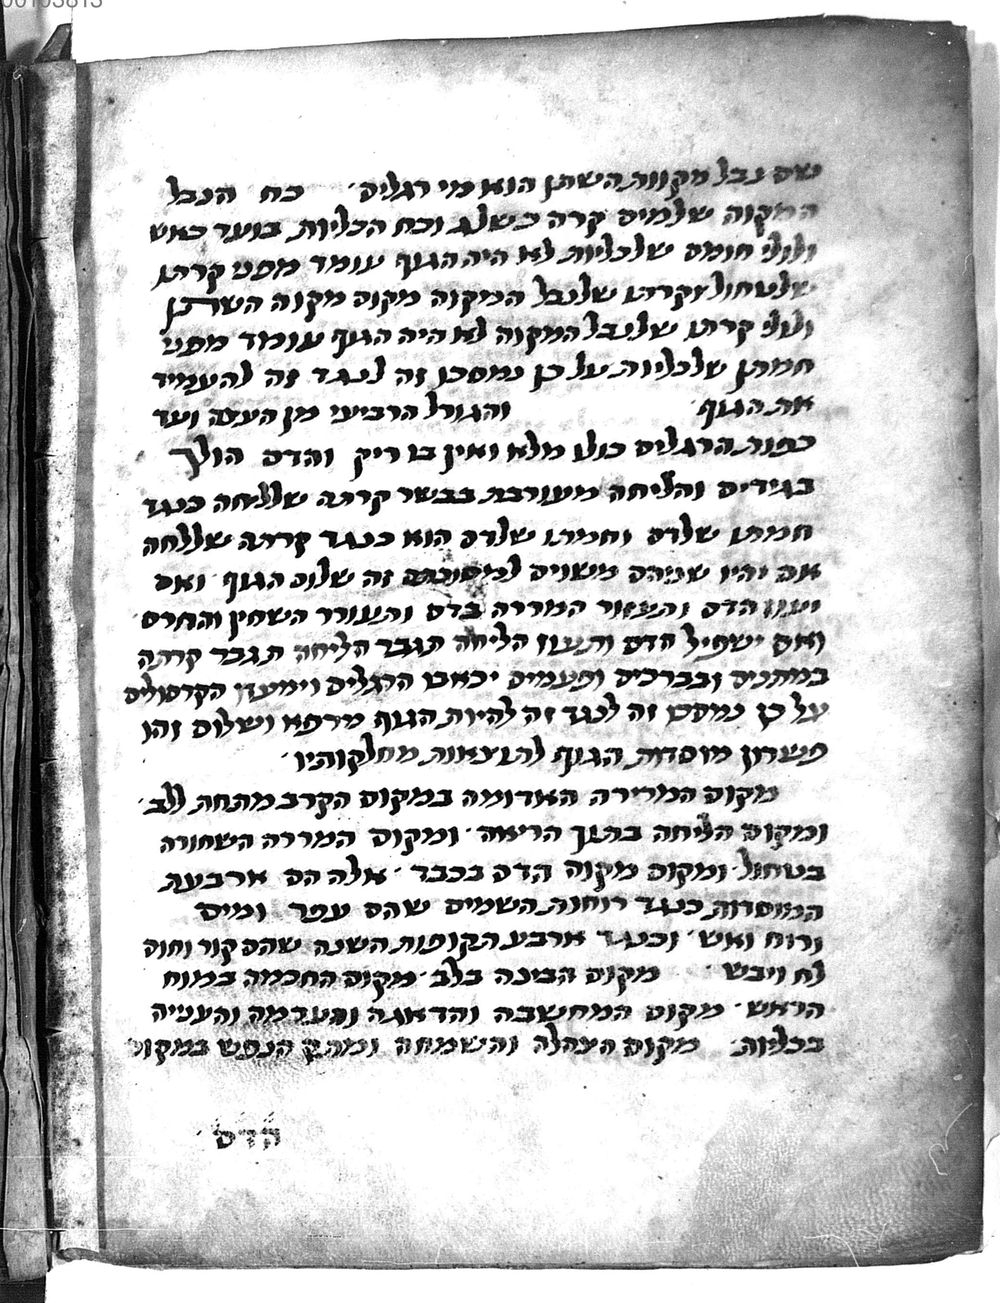 00103813
שם נבל מקוות השתן הוא מי רגלים׳ כח הנבל
המקוה שלמים קרה כשלג וכח הכליות בוער כאש
ולולי חומם שלכליות לא היה הגוף עומד מפני קרתן
שלטחול וקרתן שלנבל המקוה מקום מקוה השתן
ולולי קרתן שלנבל המקוה לא היה הגוף עומד מפני
חמתן שלכליות על כן נמסכן זה לנגד זה להעמיד
את הגוף׳ והגורל הרביעי מן העצה ועד
כפות הרגלים כולו מלא ואין בו ריק והדם הולך
בגידים והליחה מעורבת בבשר קרתה שללחה כנגד
חמתו שלדם וחמתו שלדם הוא כנגד קרתה שללחה
אם יהיו שניהם משוים זה שלום הגוף׳ ואם
הדם המררה בדם והעורר השחין והחרס׳
ואם ישפיל הדם ותעוז הליחה תגבר הליחה תגבר קרתה
במתנים ובברכים ופעמים יכאבו הרגלים וימעדן הקרסולים
על כן נמסכו זה לנגד זה להיות הגוף מרפא ושלום וזהו
פשרון מוסדות הגוף לתוצאות מחלקותיו׳
מקום המרירה האדומה במקום הקרב מתחת ללב׳
ומקום הליחה בתוך הריאה׳ ומקום המררה השחורה
בטחול׳ ומקום מקוה הדם בכבד׳ אלה הם ארבעת
המוסדות כנגד רוחות השמים שהם עפר ומים
ורוח ואש׳ וכנגד ארבע תקופות השנה שהם קור וחום
לח ויבש׳ מקום הבינה בלב׳ מקום החכמה במוח
הראש׳ מקום המחשבה והדאגה והערמה והעניה
בכליות׳ מקום הצהלה והשמחה ומהבן הנפש במקוה
הדם׳